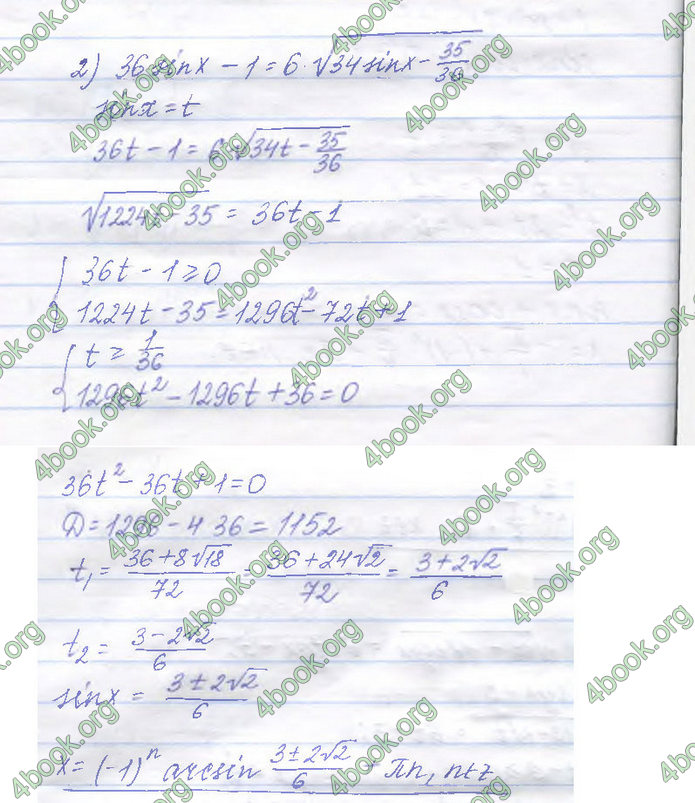 2) 36 sinx - 1 = 6·√(34 sinx - 35/36)
sinx = t
36t - 1 = 6√(34t - 35/36)
√(1224t - 35) = 36t - 1
{ 36t - 1 ≥ 0
1224t - 35 = 1296t² - 72t + 1
{ t ≥ 1/36
1296t² - 1296t + 36 = 0
36t² - 36t + 1 = 0
D = 1296 - 4 36 = 1152
t₁ = (36 + 8√18)/72 = (36 + 24√2)/72 = (3 + 2√2)/6
t₂ = (3 - 2√2)/6
sinx = (3 ± 2√2)/6
x = (-1)ⁿ arcsin (3 ± 2√2)/6 + πn, n∈z
4book.org